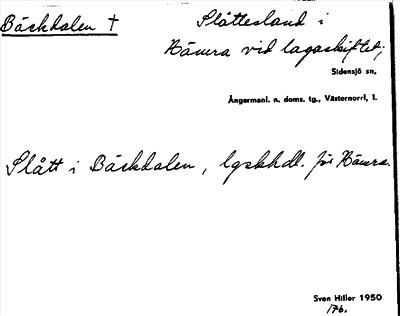 Bäckdalen †
Slåttesland i
Nänra vid lagaskiftet;
Sidensjö sn,
Ångermanl. n. doms. tg., Västernorrl, l.
Slått i Bäckdalen, lgskhdl. för Nänra.
Sven Hiller 1950
176.